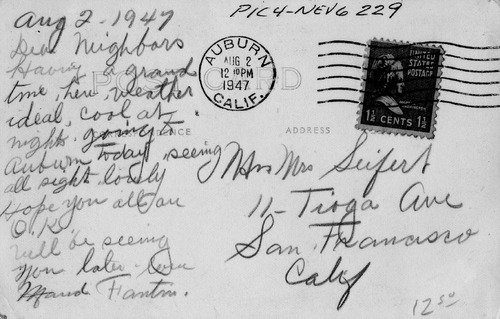 PIC4-NEV6 229
Aug 2-1947
Dear Neighbors
Having a grand
time here, weather
ideal, cool at
night, going to
Auburn today, seeing
all sight, lovely
Hope you all are
O.K.
Will be seeing
you later - Love
Maud Fantin.
POST CARD
ADDRESS
AUBURN
AUG 2
12 PM
1947
CALIF.
UNITED
STATES
POSTAGE
WASHINGTON
1½ CENTS 1½
Mrs Seifert
11 - Tioga Ave
San Francisco
Calif
12 50